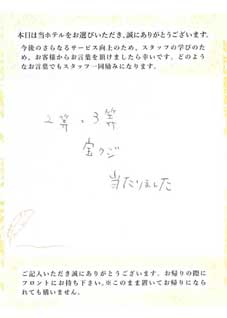 本日は当ホテルをお選びいただき、誠にありがとうございます。
今後のさらなるサービス向上のため、スタッフの学びのた
め、お客様からお言葉を頂けましたら幸いです。どのよう
なお言葉でもスタッフ一同励みになります。
2等、3等
宝クジ
当たりました
ご記入いただき誠にありがとうございます。お帰りの際に
フロントにお持ち下さい。※このまま置いてお帰りになら
れても構いません。